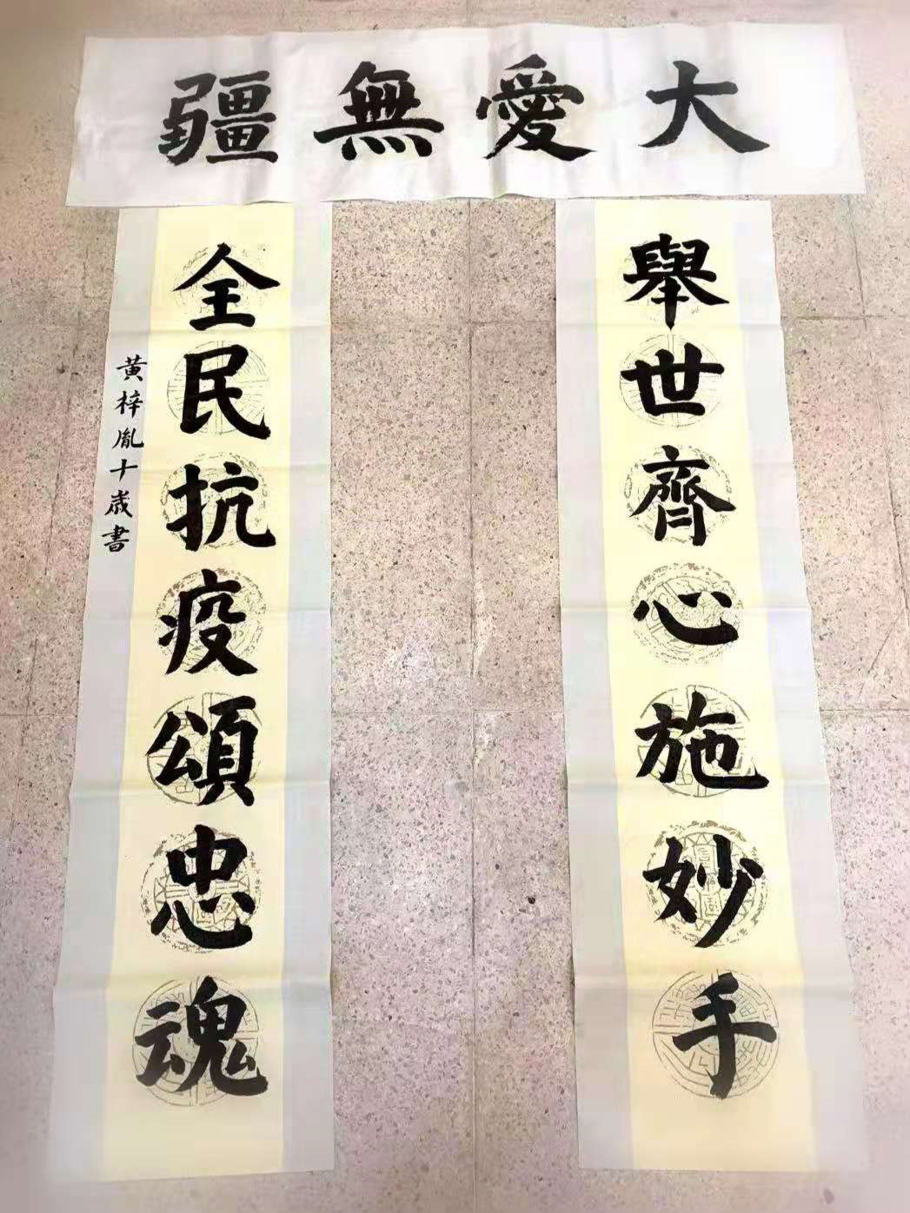 大愛無疆
舉世齊心施妙手
全民抗疫頌忠魂
黄梓胤十歲書